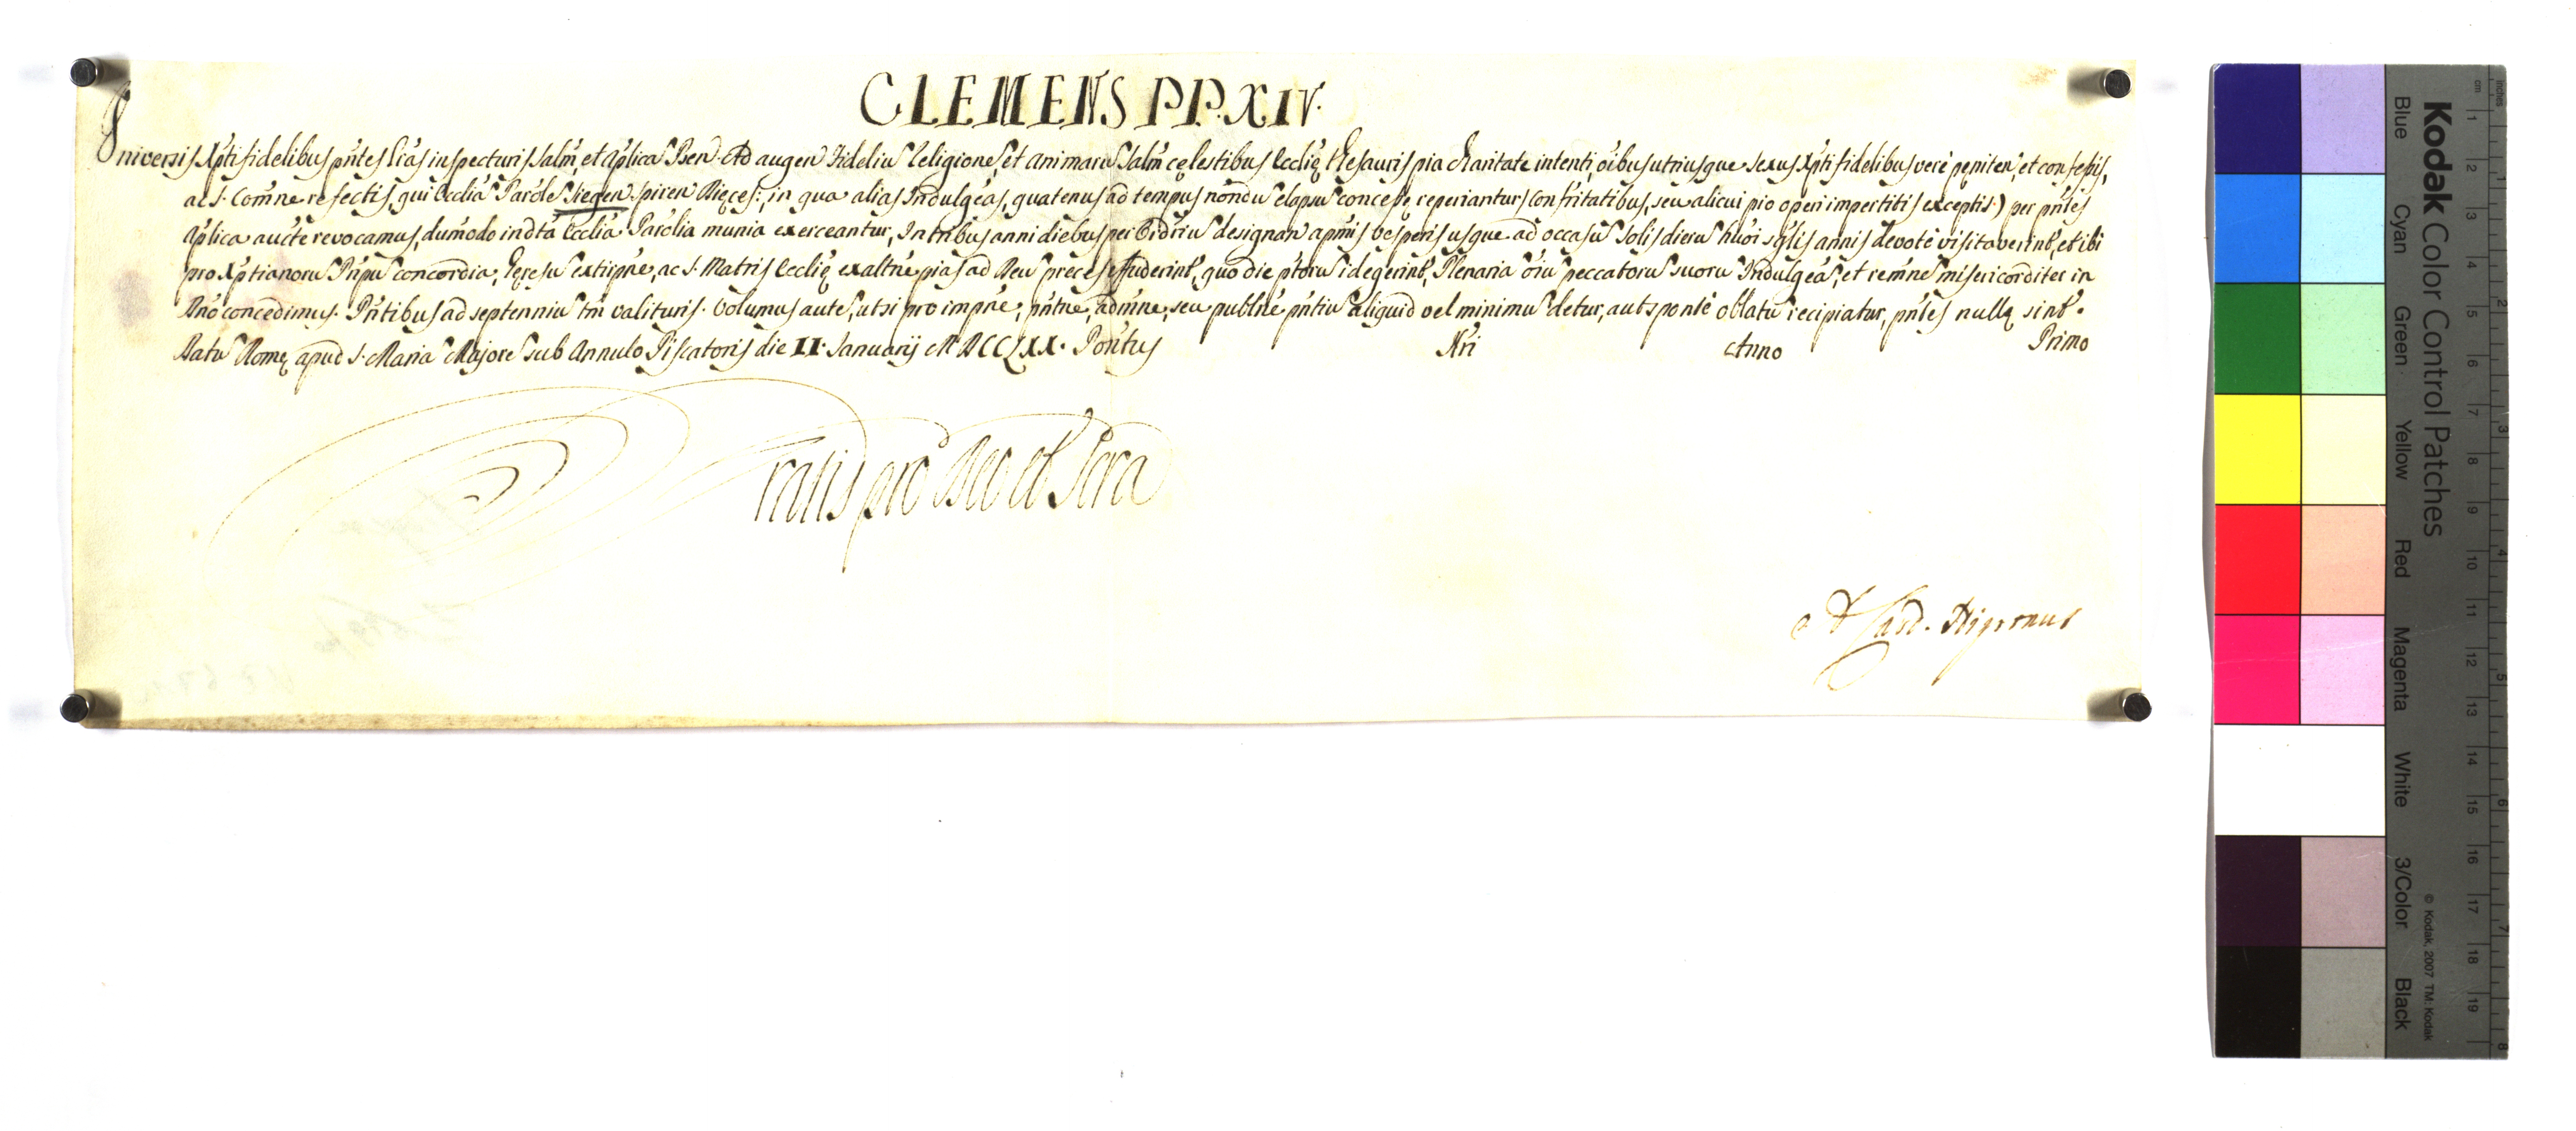 CLEMENS P.P. XIV.
Universis Xpti fidelibus pntes lras inspecturis Salm, et Aplica Ben. Ad augen Fidelium Religione, et animaru Salm cęlestibus Ecclię thesauris pia charitate intenti, oibus utriusque sexus Xpti fidelibus verè pęniten, et confessis,
ac S. Comne refectis, qui Ecclia Parole Stegen Spiren Dięces:, in qua alias Indulgeas, quatenus ad tempus nondu elapsu concessę reperiantur (confritatibus, seu alicui pio operi impertitis exceptis) per pntes
Aplica aucte revocamus, dumodo in dta Ecclia Parolia munia exerceantur, In tribus anni diebus per Ordriu designan a pmis vesperis usque ad occasu Solis dieru huoi sglis annis devotè visitaverint, et ibi
pro Xptianoru Pnpu concordia, hęresu extiirpne, ac S. Matris Ecclię exaltne pias ad Deu preces effuderint, quo die ptoru id egerint, Plenaria oiu peccatoru suoru Indulgeas, et remne misericorditer in
Dno concedimus. Pntibus ad septenniu tm valituris. Volumus aute, ut si pro impne, pntne, admne, seu publne pntiu aliquid vel minimu detur, aut sponte oblatu recipiatur, pntes nullę sint.
Datu Romę apud S. Maria Majore sub Annulo Piscatoris die II. Januarij MDCCLXX. Pontus Nri Anno Primo
ratis pro Deo et Scra
A Card. Nigronus
Kodak Color Control Patches
Blue Cyan Green Yellow Red Magenta White 3/Color Black
© Kodak, 2007 TM: Kodak
cm 1 2 3 4 5 6 7 8 9 10 11 12 13 14 15 16 17 18 19
inches 1 2 3 4 5 6 7 8